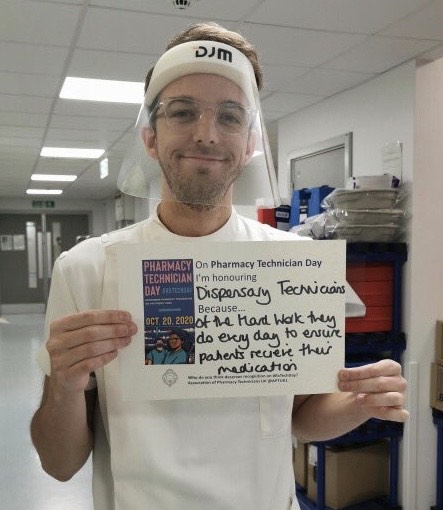 DJM
PHARMACY
TECHNICIAN
DAY #RXTECHDAY
OCT. 20, 2020
On Pharmacy Technician Day
I'm honouring
Dispensary Technicians
Because...
of the Hard Work they
do every day to ensure
patients recieve their
medication
Who do you think deserves recognition on #RxTechDay?
Association of Pharmacy Technicians UK @APTUK1